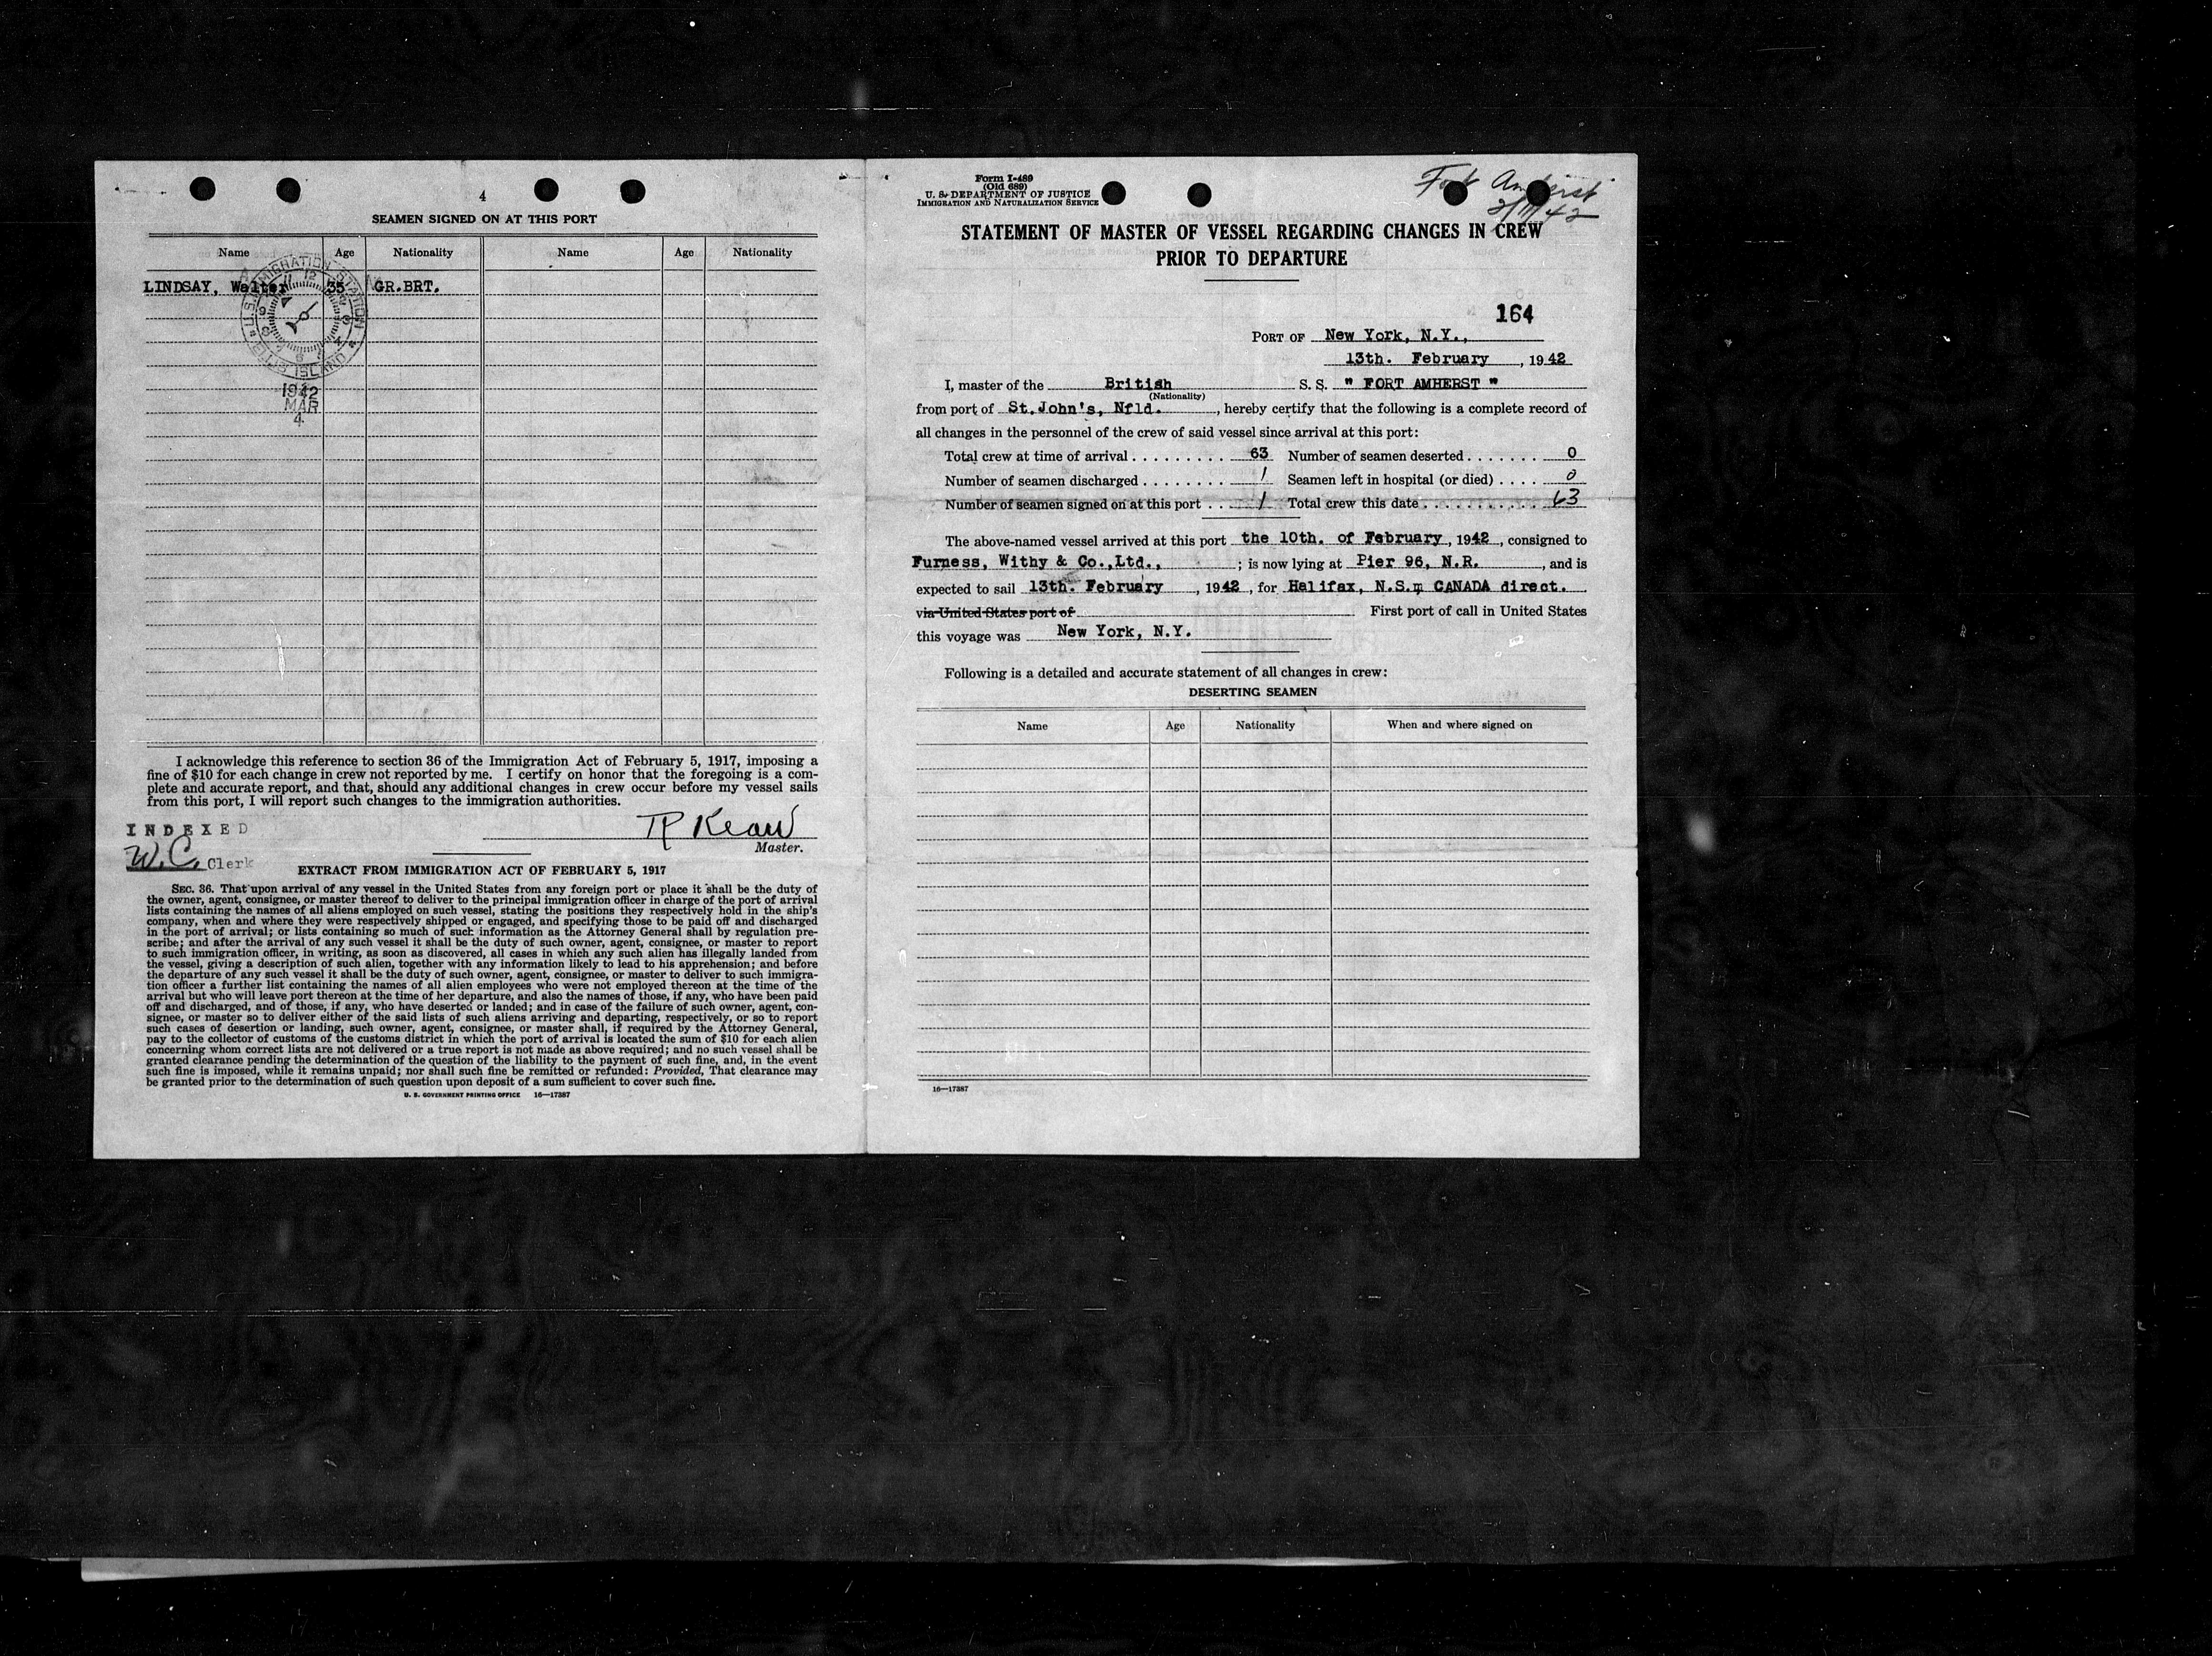 4
SEAMEN SIGNED ON AT THIS PORT
Name Age Nationality Name Age Nationality
LINDSAY, Walter 35 GR.BRT.
U.S. IMMIGRATION STATION
ELLIS ISLAND
1942
MAR
4
I acknowledge this reference to section 36 of the Immigration Act of February 5, 1917, imposing a
fine of $10 for each change in crew not reported by me. I certify on honor that the foregoing is a com-
plete and accurate report, and that, should any additional changes in crew occur before my vessel sails
from this port, I will report such changes to the immigration authorities.
INDEXED
W.C. Clerk
Kean
Master.
EXTRACT FROM IMMIGRATION ACT OF FEBRUARY 5, 1917
SEC. 36. That upon arrival of any vessel in the United States from any foreign port or place it shall be the duty of
the owner, agent, consignee, or master thereof to deliver to the principal immigration officer in charge of the port of arrival
lists containing the names of all aliens employed on such vessel, stating the positions they respectively hold in the ship's
company, when and where they were respectively shipped or engaged, and specifying those to be paid off and discharged
in the port of arrival; or lists containing so much of such information as the Attorney General shall by regulation pre-
scribe; and after the arrival of any such vessel it shall be the duty of such owner, agent, consignee, or master to report
to such immigration officer, in writing, as soon as discovered, all cases in which any such alien has illegally landed from
the vessel, giving a description of such alien, together with any information likely to lead to his apprehension; and before
the departure of any such vessel it shall be the duty of such owner, agent, consignee, or master to deliver to such immigra-
tion officer a further list containing the names of all alien employees who were not employed thereon at the time of the
arrival but who will leave port thereon at the time of her departure, and also the names of those, if any, who have been paid
off and discharged, and of those, if any, who have deserted or landed; and in case of the failure of such owner, agent, con-
signee, or master so to deliver either of the said lists of such aliens arriving and departing, respectively, or so to report
such cases of desertion or landing, such owner, agent, consignee, or master shall, if required by the Attorney General,
pay to the collector of customs of the customs district in which the port of arrival is located the sum of $10 for each alien
concerning whom correct lists are not delivered or a true report is not made as above required; and no such vessel shall be
granted clearance pending the determination of the question of the liability to the payment of such fine, and, in the event
such fine is imposed, while it remains unpaid; nor shall such fine be remitted or refunded: Provided, That clearance may
be granted prior to the determination of such question upon deposit of a sum sufficient to cover such fine.
U. S. GOVERNMENT PRINTING OFFICE 16—17387
Form I-489
(Old 689)
U. S. DEPARTMENT OF JUSTICE
IMMIGRATION AND NATURALIZATION SERVICE
Fort Amherst
2/11/42
STATEMENT OF MASTER OF VESSEL REGARDING CHANGES IN CREW
PRIOR TO DEPARTURE
164
PORT OF New York, N.Y.,
13th. February, 1942
I, master of the British S. S. " FORT AMHERST "
(Nationality)
from port of St.John's, Nfld., hereby certify that the following is a complete record of
all changes in the personnel of the crew of said vessel since arrival at this port:
Total crew at time of arrival 63 Number of seamen deserted 0
Number of seamen discharged 1 Seamen left in hospital (or died) 0
Number of seamen signed on at this port 1 Total crew this date 63
The above-named vessel arrived at this port the 10th. of February, 1942, consigned to
Furness, Withy & Co.,Ltd., ; is now lying at Pier 96, N.R., and is
expected to sail 13th. February, 1942, for Halifax, N.S., CANADA direct.
via United States port of First port of call in United States
this voyage was New York, N.Y.
Following is a detailed and accurate statement of all changes in crew:
DESERTING SEAMEN
Name Age Nationality When and where signed on
16—17387